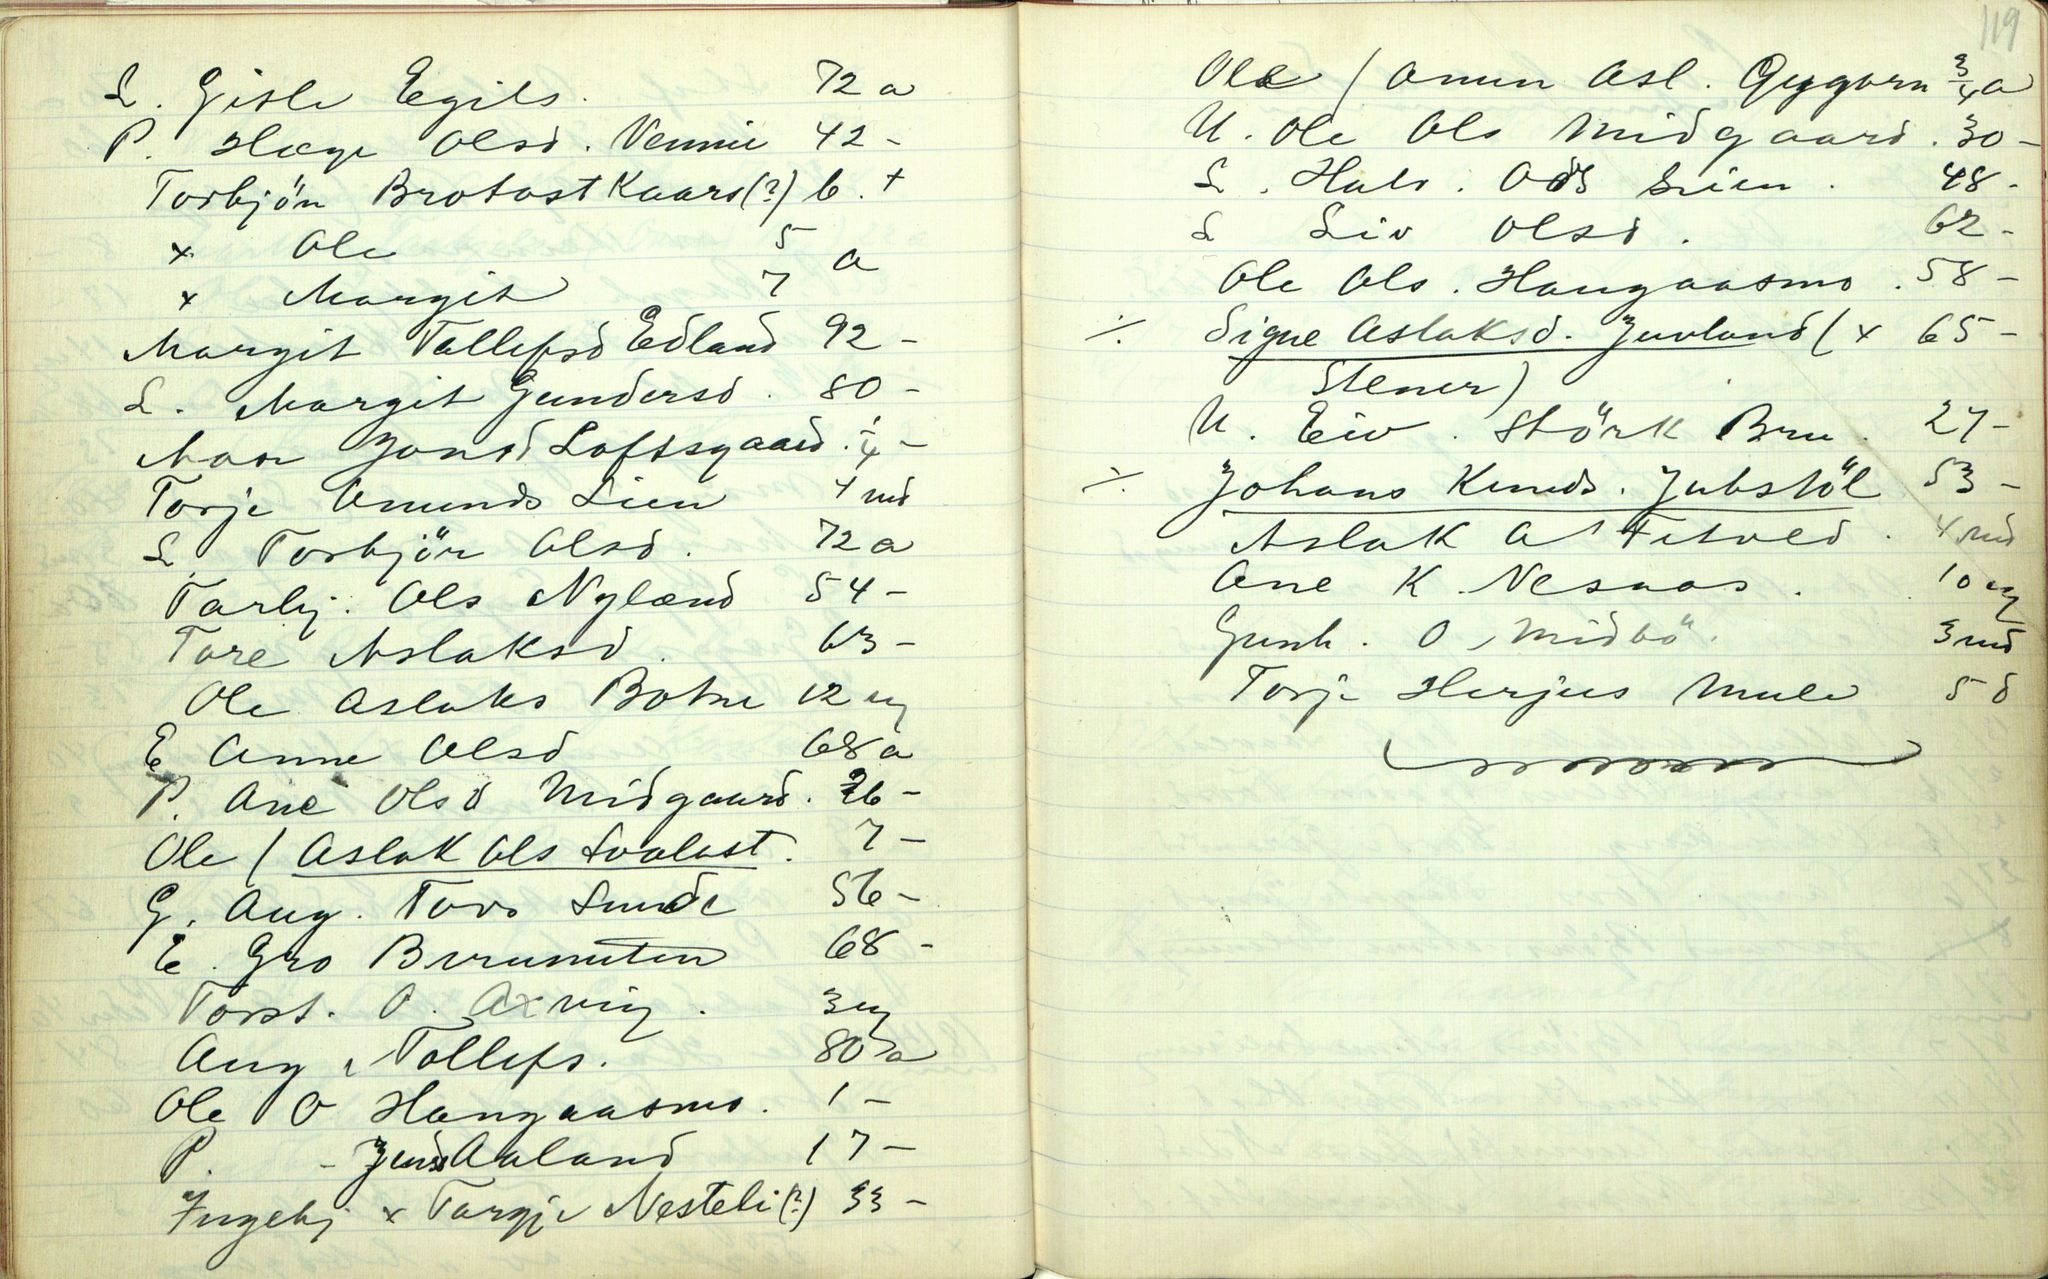 L. Gisle Egils. 72 a
P. Hæge Olsd. Vennie 42 -
Torbjön Brotast Kaars(?) 6. +
x Ole 5 a
x Margit 7
Margit Tallefsd Edland 92 -
L. Margit Gundersd. 80 -
Jonsd Loftsgaard. 1/4 -
Torje Amunds Lien 4 md
L. Torbjör Olsd. 72 a
Tarbj. Ols Nyland 54 -
Tore Aslaksd. 63 -
Ole Aslaks Botne 12 ug
E Anne Olsd 68 a
P. Ane Olsd Midgaard. 26 -
Ole / Aslak Ols Svalast. 7 -
G. Aug. Tovs Sunde 56 -
E. Gro 68 -
Torst. O. 3 ug
Aug. Tollefs. 80 a
Ole O Haugaasmo. 1 -
P. - Aaland 17 -
Ingebj x Targje Nesteli(?) 33 -
119
Ole / Amun Asl. 3/4 a
U. Ole Ols Midgaard. 30 -
L. Halv. Lien. 48 -
L Liv Olsd. 62 -
Ole Ols. Haugaasmo. 58 -
÷ Signe Aslaksd. Juvland (x 65 -
Stener)
U. Eiv. Störk Bru. 27 -
÷ Johans Knuds. Jubstöl 53 -
Aslak A Fetved. 4 md
Ane K. Nesaas. 10 ug
Gunh. O Midbö. 3 md
Torje Herjus Mule 5 d